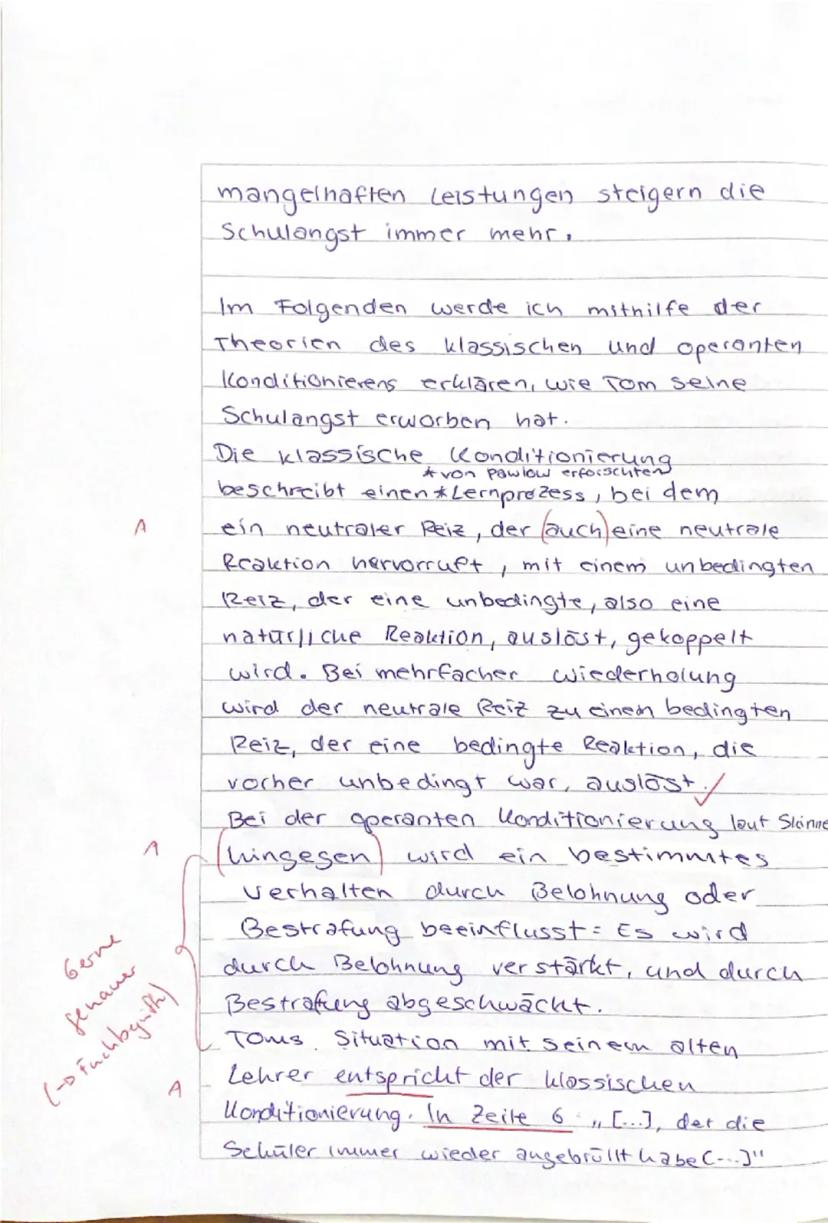 mangelhaften Leistungen steigern die
Schulangst immer mehr.
Im Folgenden werde ich mithilfe der
Theorien des klassischen und operanten
Konditionierens erklären, wie Tom seine
Schulangst erworben hat.
Die klassische Konditionierung
*von Pawlow erforschten
beschreibt einen * Lernprozess, bei dem
A ein neutraler Reiz, der (auch) eine neutrale
Reaktion hervorruft, mit einem unbedingten
Reiz, der eine unbedingte, also eine
natürliche Reaktion, auslöst, gekoppelt
wird. Bei mehrfacher wiederholung
wird der neutrale Reiz zu einem bedingten
Reiz, der eine bedingte Reaktion, die
vorher unbedingt war, auslöst. ✓
Bei der operanten Konditionierung laut Skinne
A (hingegen) wird ein bestimmtes
Verhalten durch Belohnung oder
Bestrafung beeinflusst: Es wird
durch Belohnung verstärkt, und durch
Bestrafung abgeschwächt.
Gerne
genauer
(→ Fachbegriffe)
Toms Situation mit seinem alten
A Lehrer entspricht der klassischen
Konditionierung. In Zeile 6 „[...], der die
Schüler immer wieder angebrüllt habe [...]"